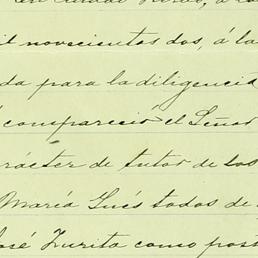 il novecientos dos, á la
da para la diligencia
compareció el Señor
rácter de tutor de los
María Luis todos de
José Zurita como post